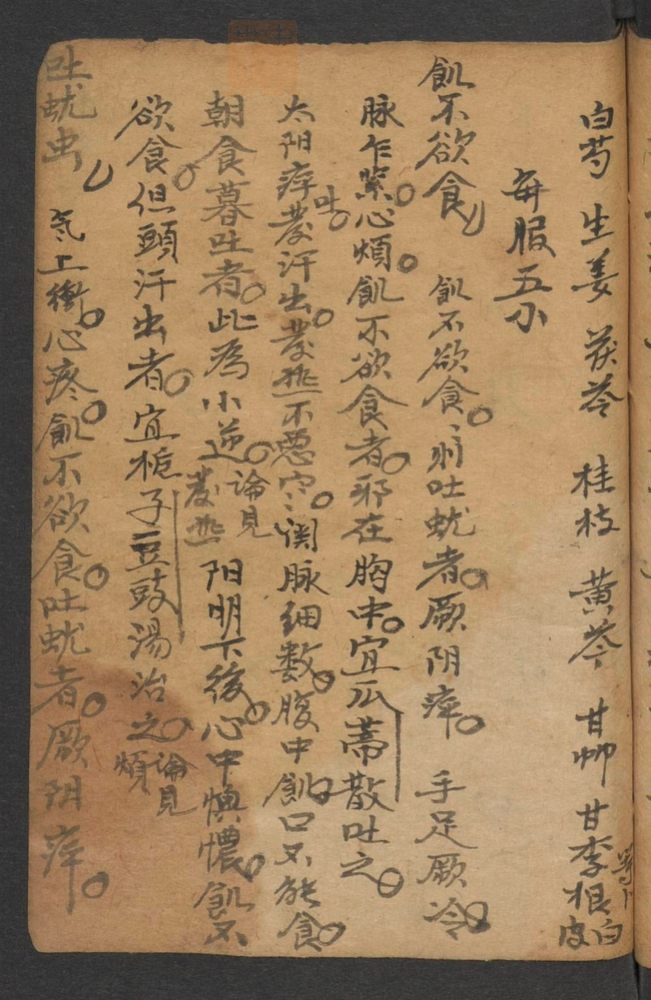 白芍 生姜 茯苓 桂枝 黄芩 甘艸 甘李根白皮
每服五小
飢不欲食 飢不欲食。則吐蚘者。厥阴痓。 手足厥冷。
脉乍紧。心煩。飢不欲食者。邪在胸中。宜瓜蒂散吐之。
太阳痓。發汗出。發热不惡寒。関脉细数。腹中飢。口不能食。
吐
朝食暮吐者。此為小逆。論見發热 阳明下後。心中懊憹。飢不
欲食。但頭汗出者。宜栀子豆豉湯治之。論見煩
吐蚘虫 氣上衝。心疼。飢不欲食。吐蚘者。厥阴痓。